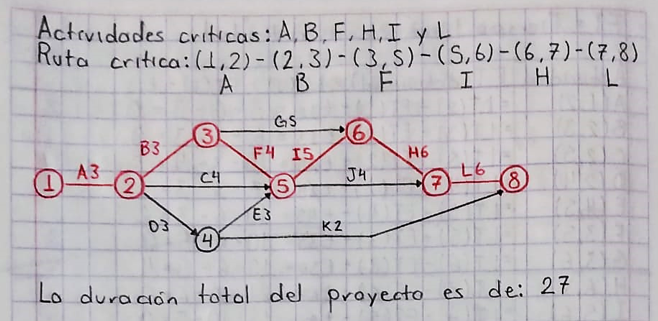 Actividades criticas: A, B, F, H, I y L
Ruta critica: (1,2) - (2,3) - (3,5) - (5,6) - (6,7) - (7,8)
A B F I H L
G5
3 6
B3 F4 I5 H6
A3 C4 J4 L6
1 2 5 7 8
D3 E3 K2
4
La duración total del proyecto es de: 27